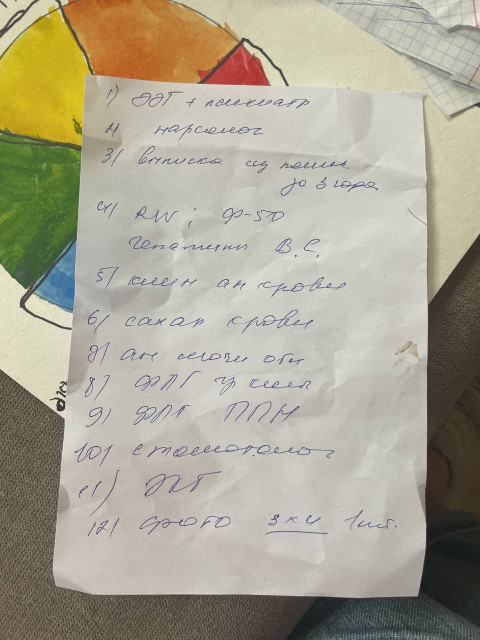 1) ЭЭГ + психиатр
2) нарколог
3) выписка из поликл
за 3 года
4) RW; Ф-50
Гепатиты В.С.
5) клин ан крови
6) сахар крови
7) ан мочи общ
8) ФЛГ гр клетк
9) ФЛГ ППН
10) стоматолог
11) ЭКГ
12) фото 3х4 1шт.